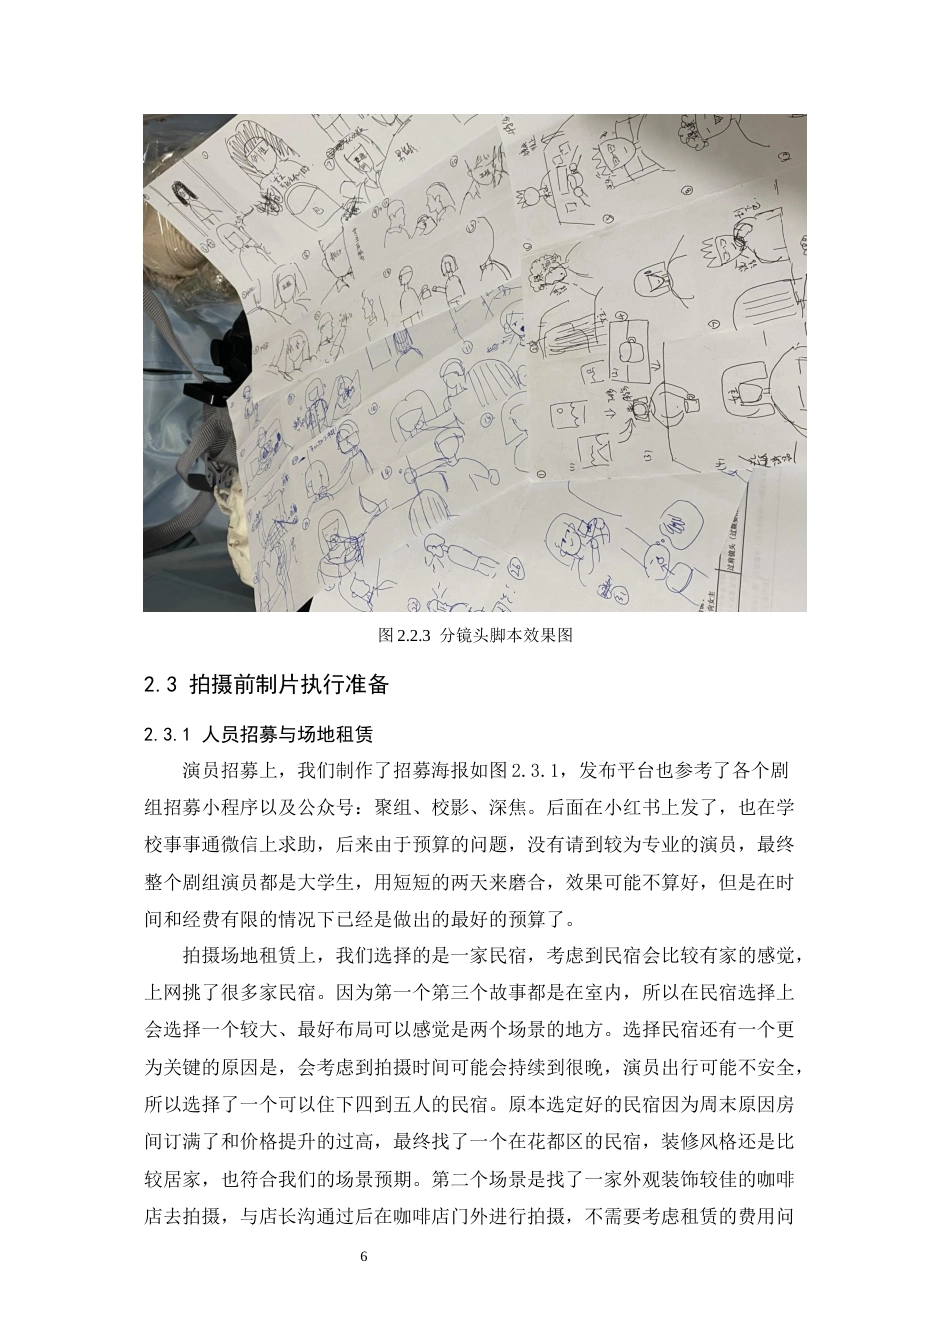 过肩镜头（过颤
向女主
图 2.2.3 分镜头脚本效果图
2.3 拍摄前制片执行准备
2.3.1 人员招募与场地租赁
演员招募上，我们制作了招募海报如图 2.3.1，发布平台也参考了各个剧
组招募小程序以及公众号：聚组、校影、深焦。后面在小红书上发了，也在学
校事事通微信上求助，后来由于预算的问题，没有请到较为专业的演员，最终
整个剧组演员都是大学生，用短短的两天来磨合，效果可能不算好，但是在时
间和经费有限的情况下已经是做出的最好的预算了。
拍摄场地租赁上，我们选择的是一家民宿，考虑到民宿会比较有家的感觉，
上网挑了很多家民宿。因为第一个第三个故事都是在室内，所以在民宿选择上
会选择一个较大、最好布局可以感觉是两个场景的地方。选择民宿还有一个更
为关键的原因是，会考虑到拍摄时间可能会持续到很晚，演员出行可能不安全，
所以选择了一个可以住下四到五人的民宿。原本选定好的民宿因为周末原因房
间订满了和价格提升的过高，最终找了一个在花都区的民宿，装修风格还是比
较居家，也符合我们的场景预期。第二个场景是找了一家外观装饰较佳的咖啡
店去拍摄，与店长沟通过后在咖啡店门外进行拍摄，不需要考虑租赁的费用问
6